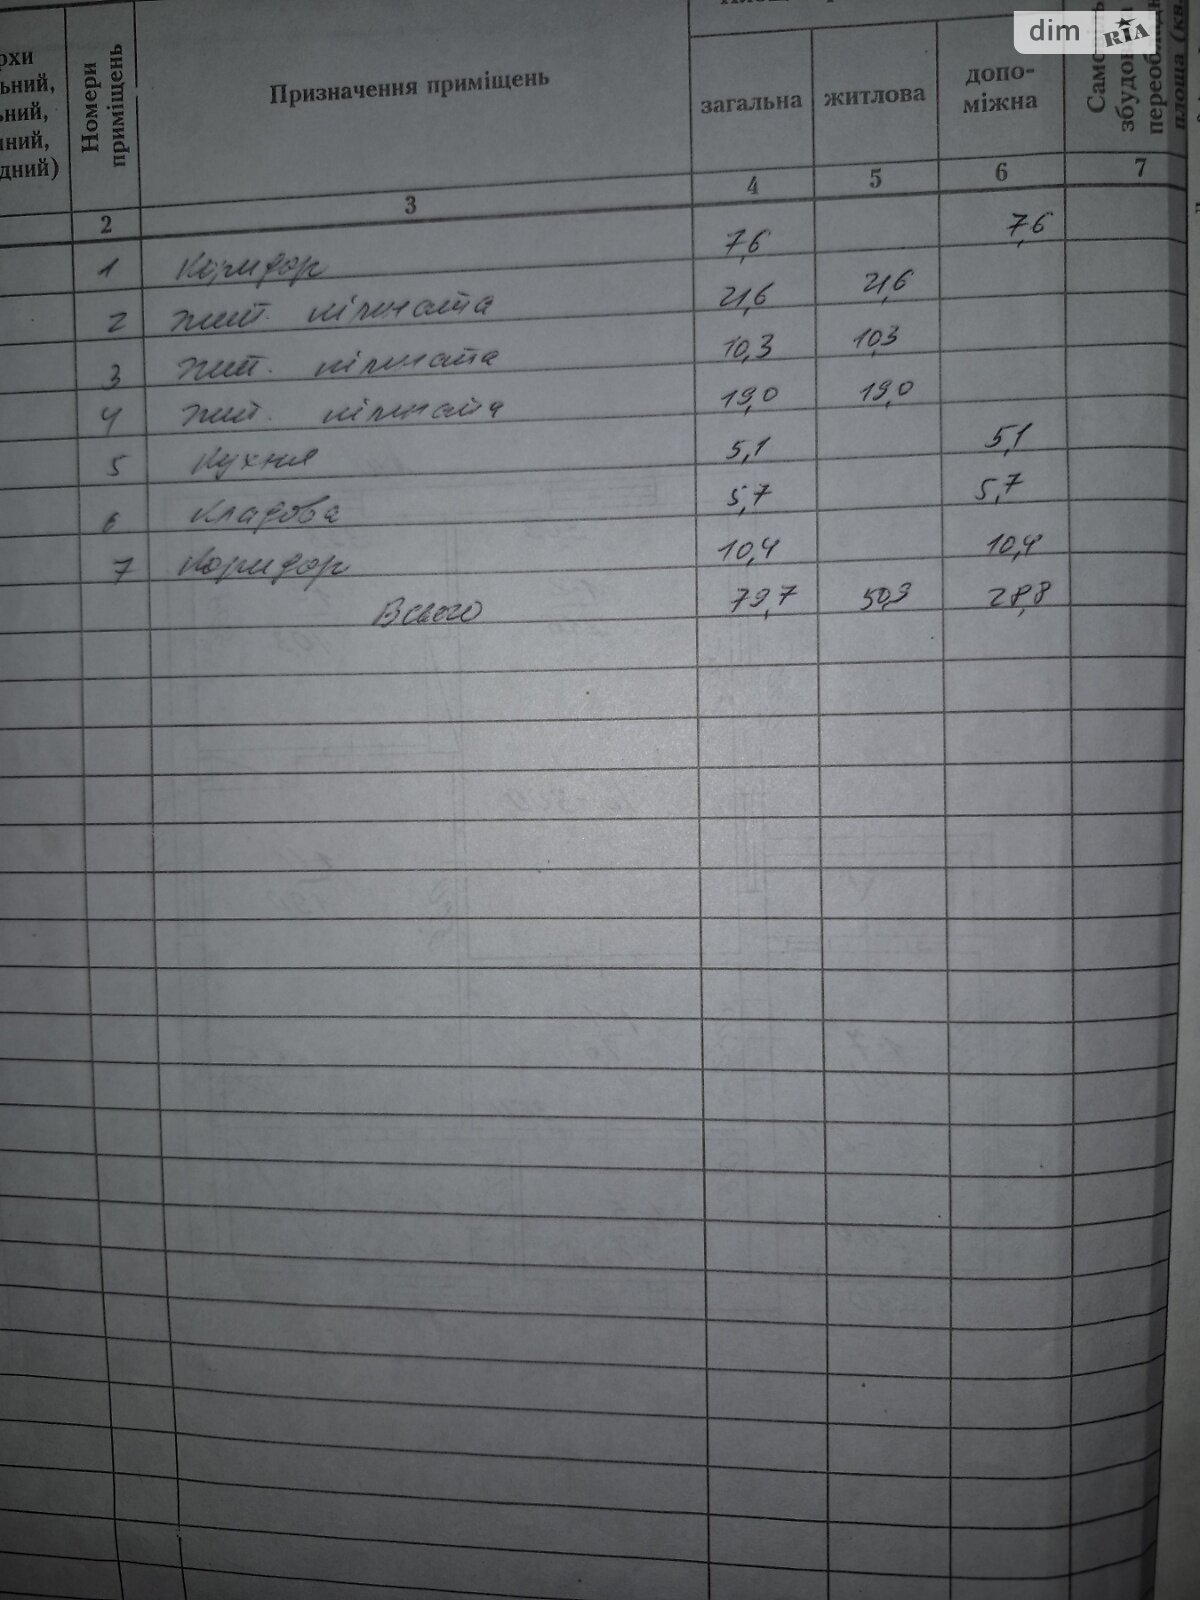 dim RIA
рхи
ьний,
ьний,
нний,
дний)
Номери приміщень
Призначення приміщень
загальна
житлова
допо-
міжна
збудов
площа (кв.
2 3 4 5 6 7
1 Коридор 7,6 7,6
2 Жит. кімната 21,6 21,6
3 Жит. кімната 10,3 10,3
4 Жит. кімната 19,0 19,0
5 Кухня 5,1 5,1
6 Кладова 5,7 5,7
7 Коридор 10,4 10,4
Всього 79,7 50,9 28,8